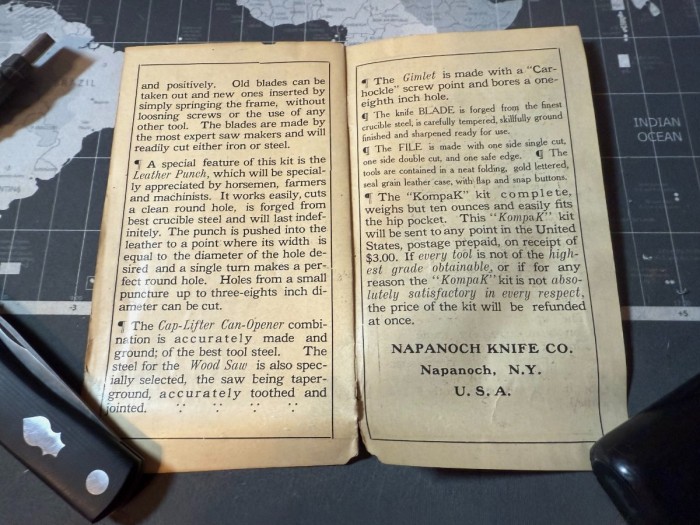 and positively. Old blades can be
taken out and new ones inserted by
simply springing the frame, without
loosning screws or the use of any
other tool. The blades are made by
the most expert saw makers and will
readily cut either iron or steel.
¶ A special feature of this kit is the
Leather Punch, which will be special-
ly appreciated by horsemen, farmers
and machinists. It works easily, cuts
a clean round hole, is forged from
best crucible steel and will last indef-
initely. The punch is pushed into the
leather to a point where its width is
equal to the diameter of the hole de-
sired and a single turn makes a per-
fect round hole. Holes from a small
puncture up to three-eights inch di-
ameter can be cut.
¶ The Cap-Lifter Can-Opener combi-
nation is accurately made and
ground; of the best tool steel. The
steel for the Wood Saw is also spec-
ially selected, the saw being taper-
ground, accurately toothed and
jointed.
¶ The Gimlet is made with a "Car-
hockle" screw point and bores a one-
eighth inch hole.
¶ The knife BLADE is forged from the finest
crucible steel, is carefully tempered, skillfully ground
finished and sharpened ready for use.
¶ The FILE is made with one side single cut,
one side double cut, and one safe edge. ¶ The
tools are contained in a neat folding, gold lettered,
seal grain leather case, with flap and snap buttons.
¶ The "KompaK" kit complete,
weighs but ten ounces and easily fits
the hip pocket. This "KompaK" kit
will be sent to any point in the United
States, postage prepaid, on receipt of
$3.00. If every tool is not of the high-
est grade obtainable, or if for any
reason the "KompaK" kit is not abso-
lutely satisfactory in every respect,
the price of the kit will be refunded
at once.
NAPANOCH KNIFE CO.
Napanoch, N.Y.
U. S. A.
INDIAN
OCEAN